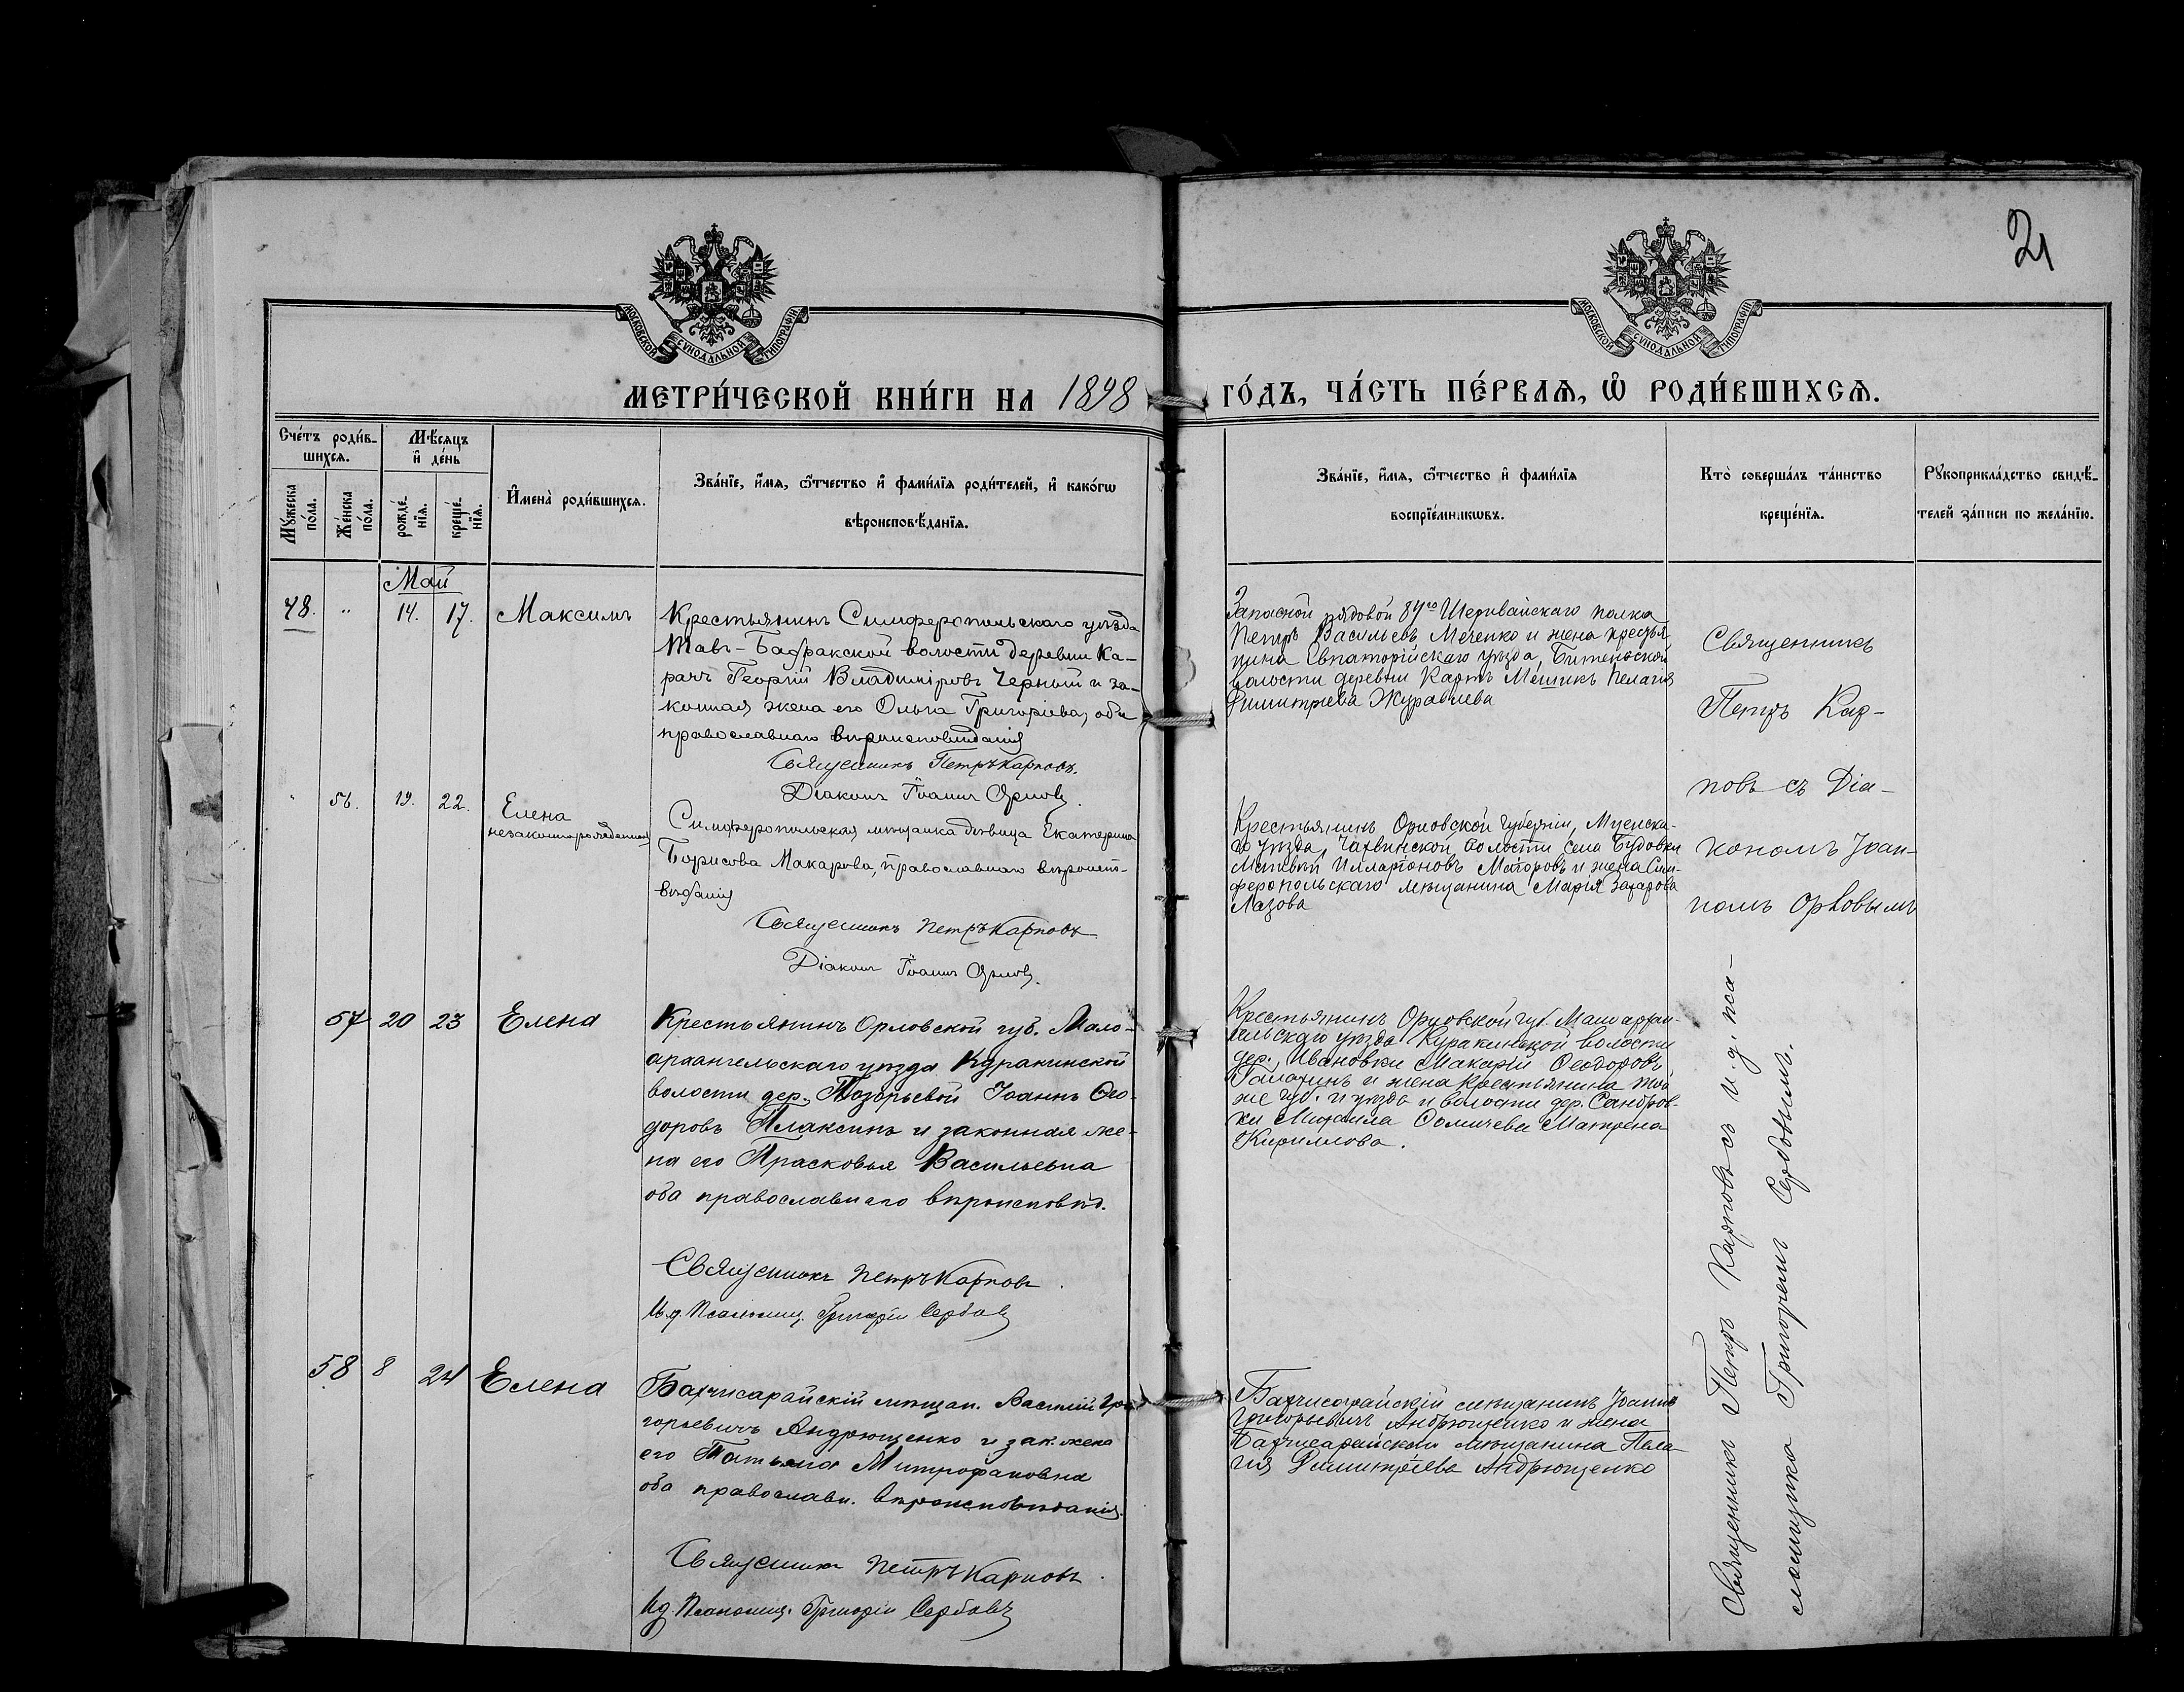 21
МОСКОВСКОЙ СѴНОДАЛЬНОЙ ТИПОГРАФІИ
МОСКОВСКОЙ СѴНОДАЛЬНОЙ ТИПОГРАФІИ
МЕТРИ́ЧЕСКОЙ КНИ́ГИ НА 1898 ГО́ДЪ, ЧА́СТЬ ПЕ́РВАѦ, Ѡ҆ РОДИ́ВШИХСѦ.
Сче́тъ роди́в-
шихсѧ.
Мѣ́сяцъ
и҆ де́нь
Мꙋ́жеска
по́ла.
Же́нска
по́ла.
рожде́-
нїѧ.
креще́-
нїѧ.
И҆мена̀ роди́вшихсѧ.
Зва́нїе, и҆́мѧ, ѻ҆́тчество и҆ фами́лїѧ роди́телей, и҆ како́гѡ
вѣроисповѣ́данїѧ.
Зва́нїе, и҆́мѧ, ѻ҆́тчество и҆ фами́лїѧ
воспрїе́мникѡвъ.
Кто̀ соверша́лъ та́инство
креще́нїѧ.
Рꙋкоприкла́дство свидѣ́-
телей за́писи по жела́нїю.
Май
48. " 14. 17. Максимъ
Крестьянинъ Симферопольскаго уѣзда
Тавъ-Бадракской волости деревни Ка-
рачъ Георгій Владиміровъ Черный и за-
конная жена его Ольга Григоріева, оба
православнаго вѣроисповѣданія
Священникъ Петръ Карповъ.
Діаконъ Іоаннъ Орловъ.
Запасной рядовой 84го Ширванскаго полка
Петръ Васильевъ Меченко и жена крестья
нина Евпаторійскаго уѣзда,
волости деревни Пелагія
Димитріева Журавлева
Священникъ
Петръ Кар-
повъ съ Діа-
кономъ Іоан-
номъ Орловымъ
" 56. 19. 22. Елена
незаконнорожденная
Симферопольская мѣщанка дѣвица Екатерина
Борисова Макарова, православнаго вѣроиспо-
вѣданія
Священникъ Петръ Карповъ
Діаконъ Іоаннъ Орловъ.
Крестьянинъ Орловской губерніи, Мценска-
го уѣзда, волости села
Матвѣй Илларіоновъ Маіоровъ и жена Сим-
феропольскаго мѣщанина Марія Захарова
Лазова
57 20 23 Елена
Крестьянинъ Орловской губ. Мало-
архангельскаго уѣзда Куракинской
волости дер. Іоаннъ Ѳео-
доровъ Плаксинъ и законная же-
на его Прасковья Васильевна
оба православнаго вѣроисповѣд.
Священникъ Петръ Карповъ.
И. д. Псаломщ. Григорій Сербовъ
Крестьянинъ Орловской губ. Малоархан-
гельскаго уѣзда Куракинской волости
дер. Ивановки Макарій Ѳеодоровъ
и жена крестьянина той
же губ. и уѣзда и волости дер.
Михаила Матрена
Кириллова.
58 8 24 Елена
Бахчисарайскій мѣщан. Василій Гри-
горьевичъ Андрющенко и зак. жена
его Татьяна Митрофановна
оба правослaвн. вѣроисповѣданія.
Священникъ Петръ Карповъ.
И д. Псаломщ. Григорій Сербовъ
Бахчисарайскій мѣщанинъ Іоаннъ
Григорьевичъ Андрющенко и жена
Бахчисарайскаго мѣщанина Пела-
гія Димитріева Андрющенко
Священникъ Петръ Карповъ съ и. д. пса-
ломщика Григоріемъ Сербовымъ.